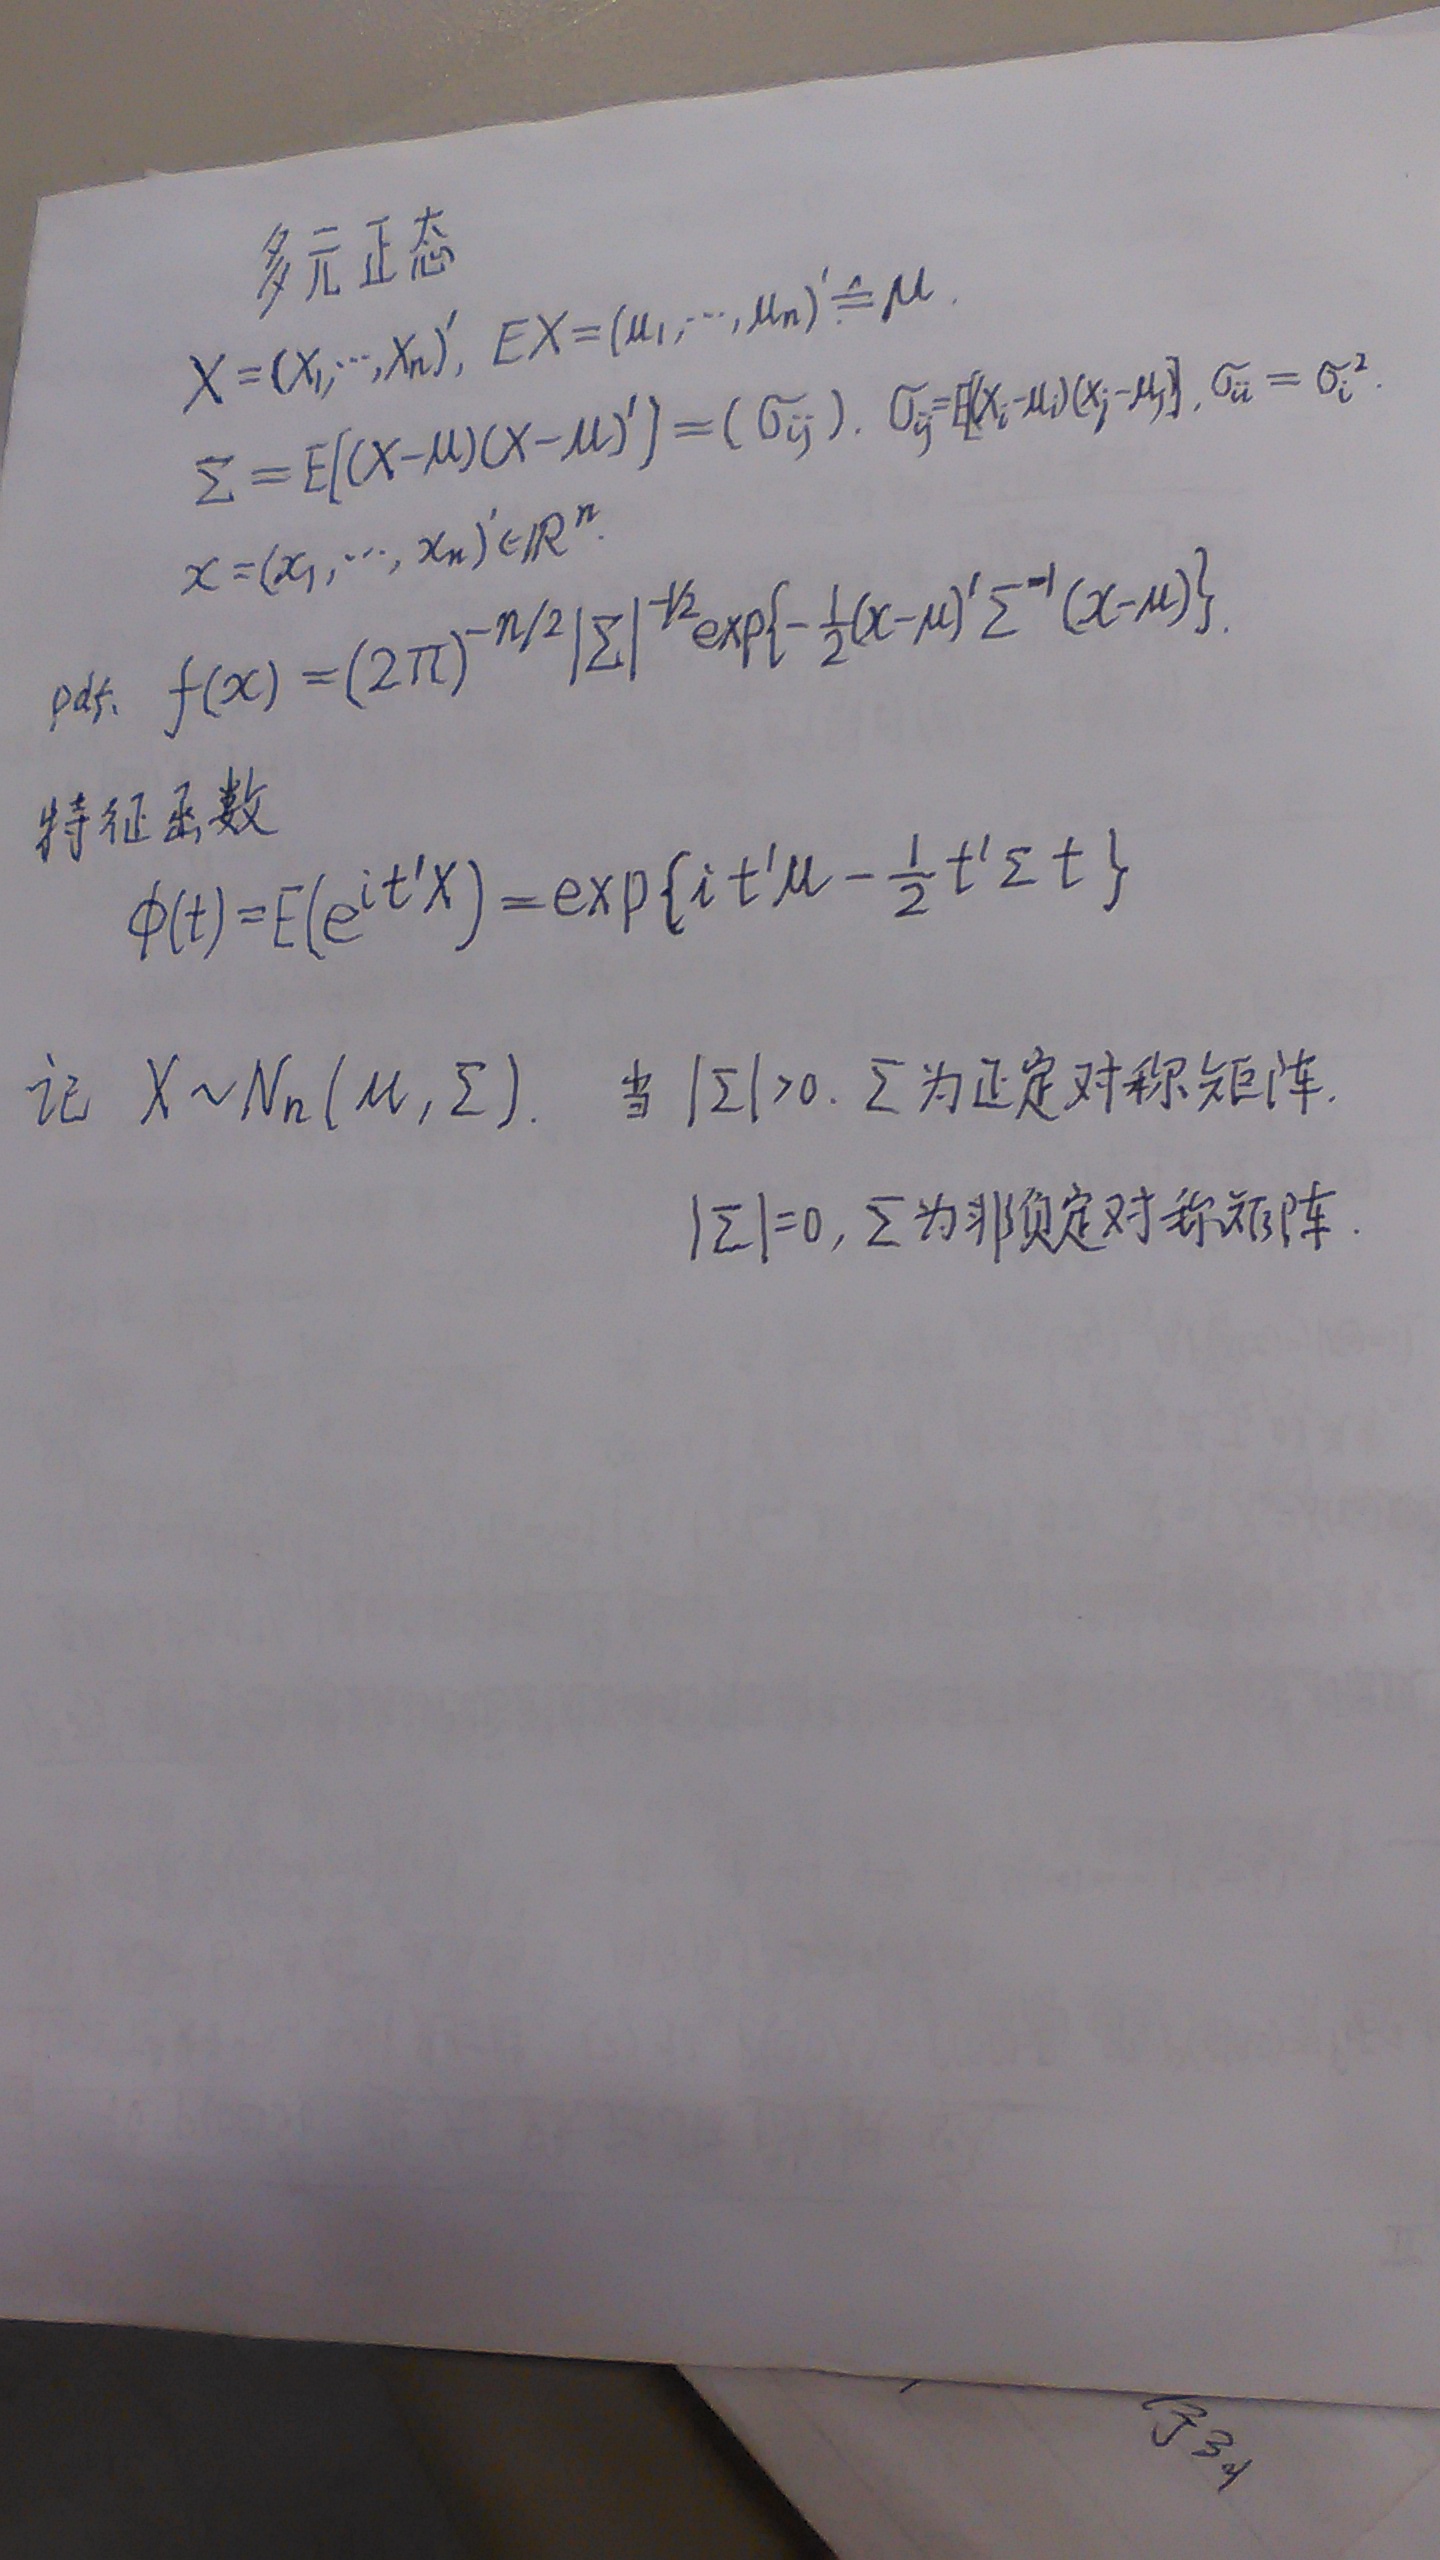 多元正态
X=(X₁,…,Xₙ)′, EX=(μ₁,…,μₙ)′≙μ.
Σ=E[(X-μ)(X-μ)′]=(σᵢⱼ). σᵢⱼ=E[(Xᵢ-μᵢ)(Xⱼ-μⱼ)], σᵢᵢ=σᵢ².
x=(x₁,…,xₙ)′∈ℝⁿ.
pdf. f(x)=(2π)^{-n/2}|Σ|^{-1/2}exp{-½(x-μ)′Σ⁻¹(x-μ)}.
特征函数
φ(t)=E(e^{it′X})=exp{it′μ-½t′Σt}
记 X~Nₙ(μ,Σ). 当|Σ|>0. Σ为正定对称矩阵.
|Σ|=0, Σ为非负定对称矩阵.